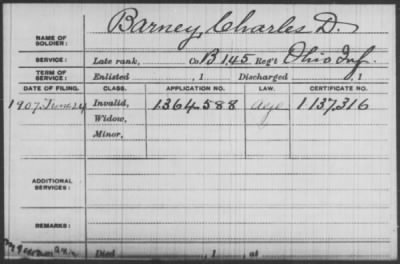 NAME OF SOLDIER: Barney, Charles D.
SERVICE: Late rank, Co. B 145 Reg't Ohio Inf.
TERM OF SERVICE: Enlisted , 1 Discharged , 1
DATE OF FILING. CLASS. APPLICATION NO. LAW. CERTIFICATE NO.
1907. June 24 Invalid, 1364588 age 1137316
Widow,
Minor,
ADDITIONAL SERVICES:
REMARKS:
Died , 1 , at